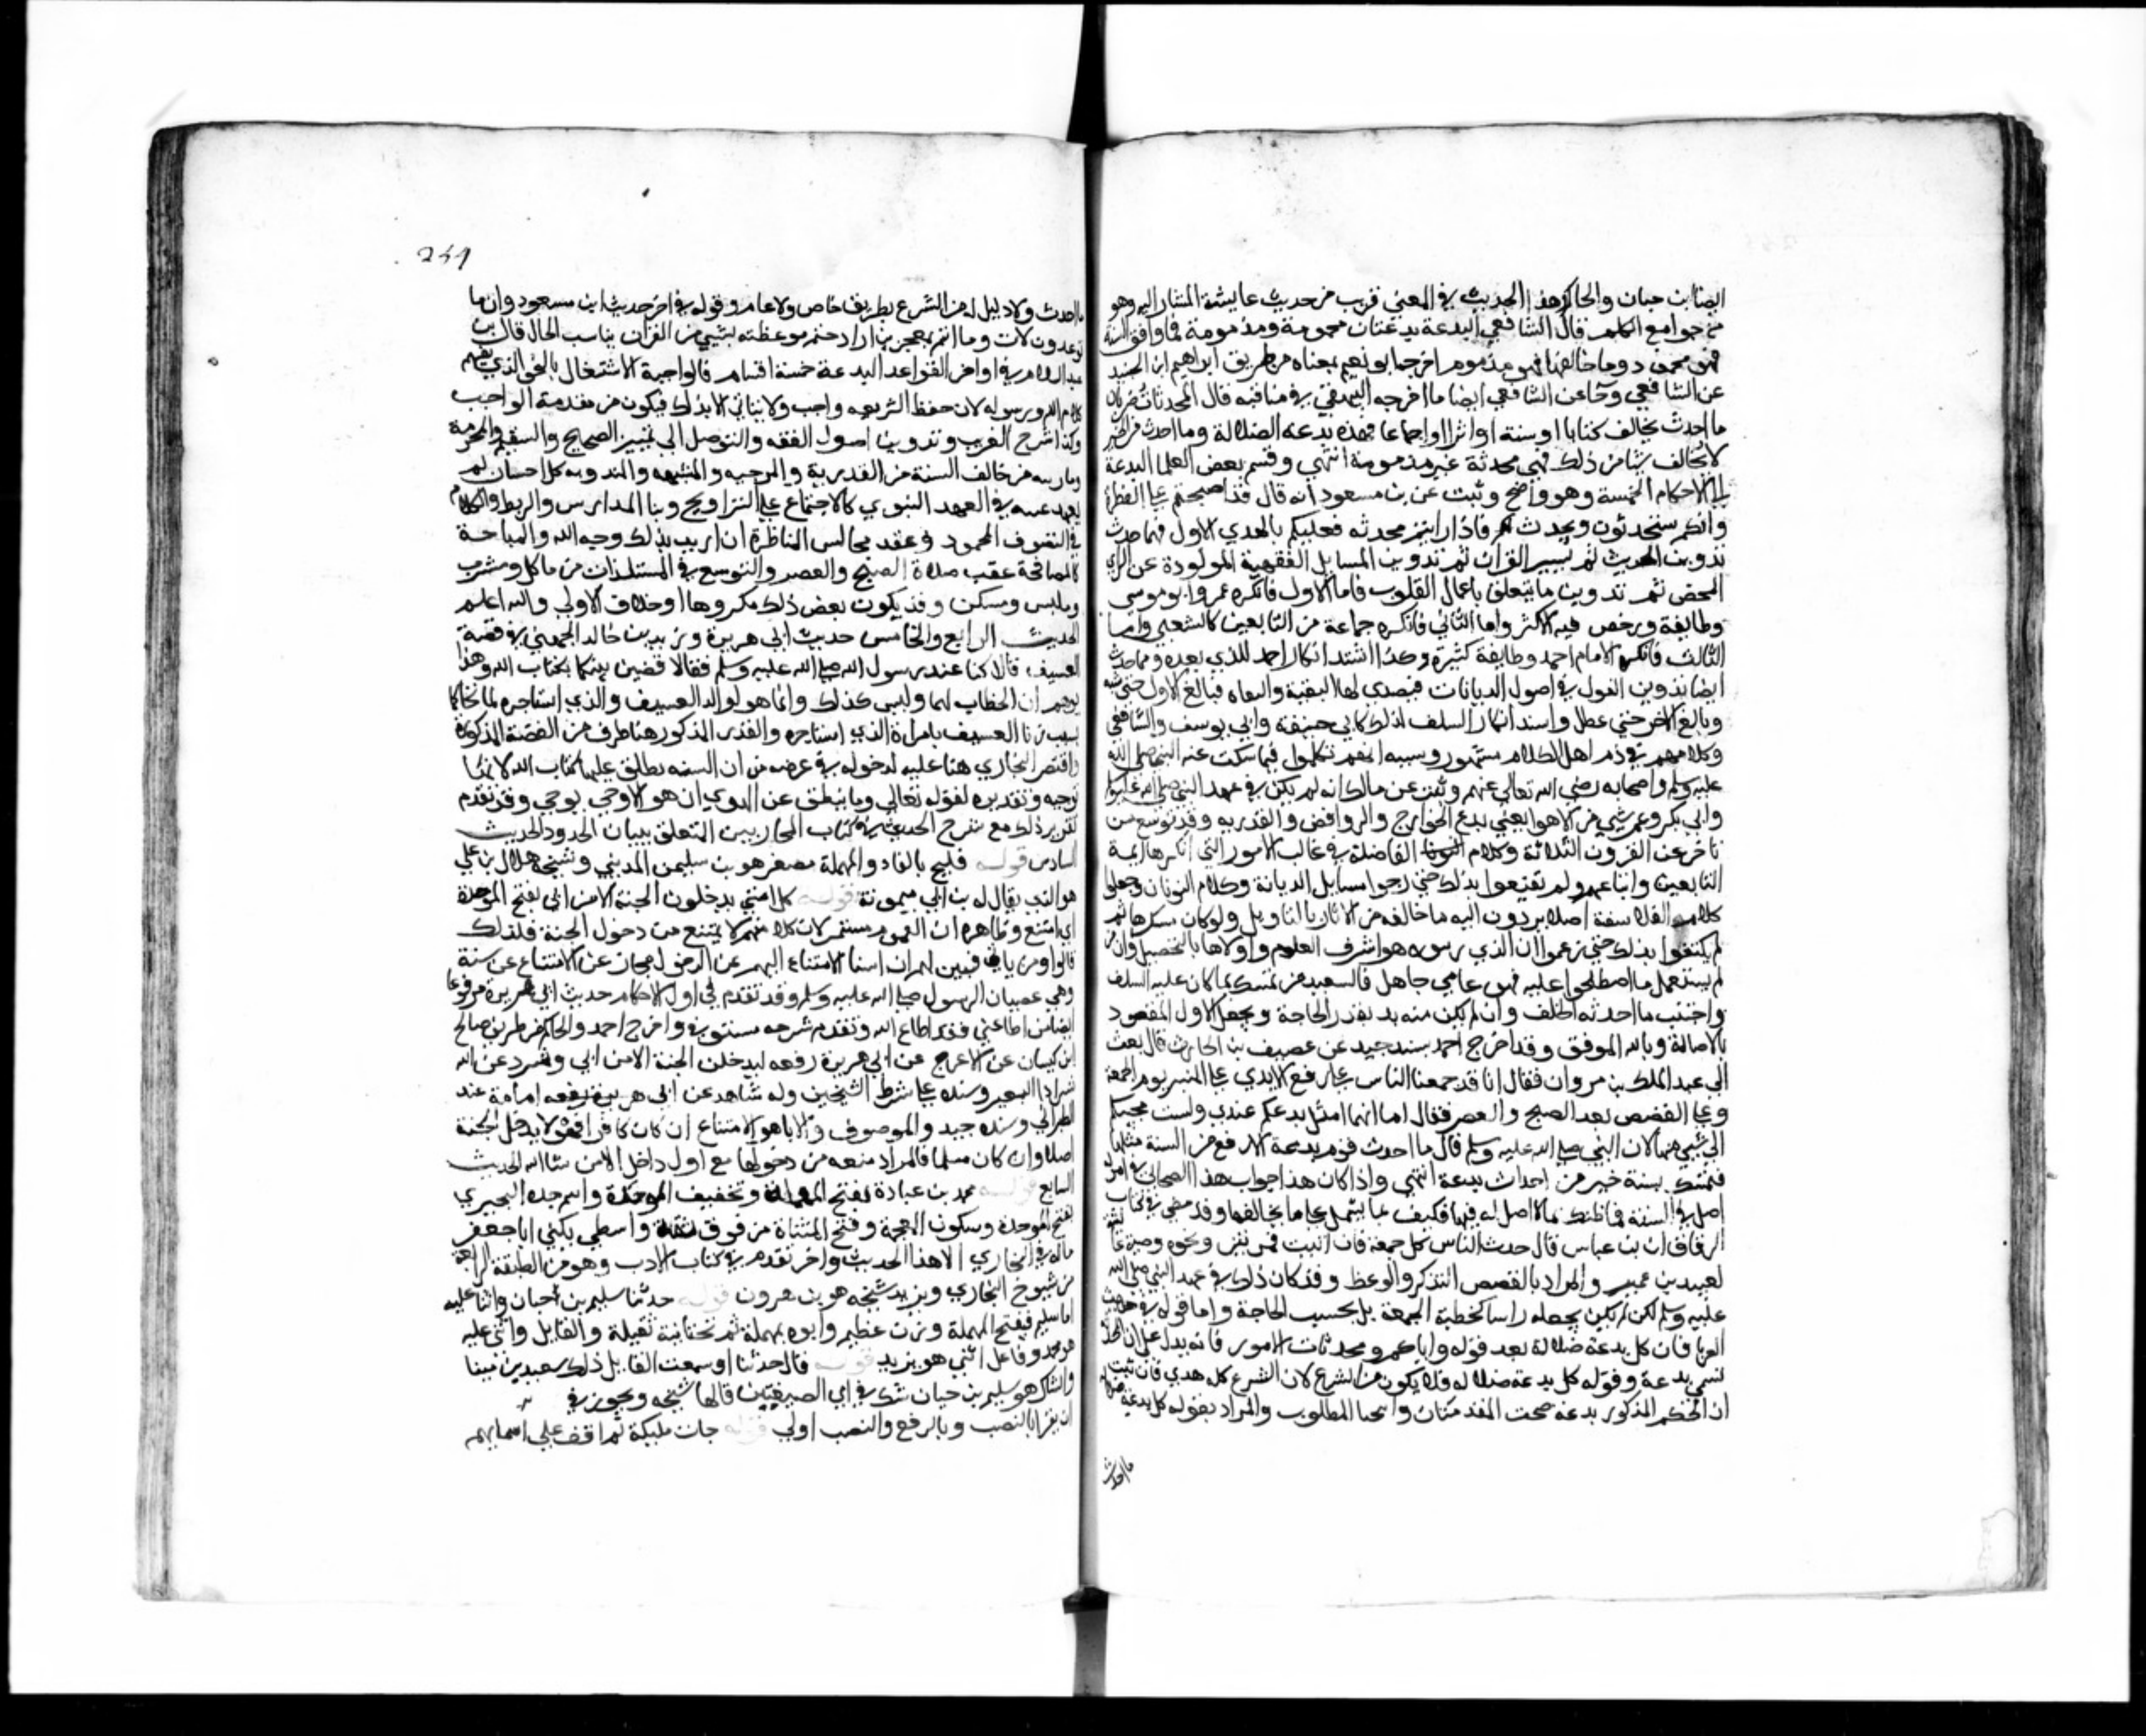 ايضا بن حبان والحاكم هذا الحديث في المعني قريب من حديث عايشة المشار اليه وهو
من جوامع الكلم قال الشافعي البدعة بدعتان محمودة ومذمومة فما وافق السنة
فهو محمود وما خالفها فهو مذموم اخرجه ابو نعيم بمعناه من طريق ابراهيم ابن الجنيد
عن الشافعي وجا عن الشافعي ايضا ما اخرجه البيهقي في مناقبه قال المحدثات ضربان
ما احدث يخالف كتابا او سنة او اثرا او اجماعا فهذه بدعة الضلالة وما احدث من الخير
لا يخالف شيا من ذلك فهي محدثة غير مذمومة انتهي وقسم بعض العلما البدعة
الي الاحكام الخمسة وهو واضح وثبت عن بن مسعود انه قال قد اصبحتم علي الفطرة
وانكم ستحدثون ويحدث لكم فاذا رايتم محدثه فعليكم بالهدي الاول فمما حدث
تدوين الحديث ثم تفسير القران ثم تدوين المسايل الفقهية المولودة عن الراي
المحض ثم تدوين ما يتعلق باعمال القلوب فاما الاول فانكره عمر وابو موسي
وطايفة ورخص فيه الاكثر واما الثاني فانكره جماعة من التابعين كالشعبي واما
الثالث فانكره الامام احمد وطايفة كثيرة وكذا اشتد انكار احمد للذي بعده ومما حدث
ايضا تدوين القول في اصول الديانات فتصدي لها المثبتة والنفاه فبالغ الاول حتي شبه
وبالغ الاخر حتي عطل واشتد انكار السلف لذلك كابي حنيفة وابي يوسف والشافعي
وكلامهم في ذم اهل الكلام مشهور وسببه انهم تكلموا فيما سكت عنه النبي صلي الله
عليه وسلم واصحابه رضي الله تعالي عنهم وثبت عن مالك انه لم يكن في عهد النبي صلي الله عليه وسلم
وابي بكر وعمر شي من الاهوا يعني بدع الخوارج والروافض والقدريه وقد توسع من
تاخر عن القرون الثلاثة الفاضلة في غالب الامور التي انكرها ايمة
التابعين واتباعهم ولم يقتنعوا بذلك حتي مزجوا مسايل الديانة وكلام اليونان وجعلوا
كلام الفلاسفة اصلا يردون اليه ما خالفه من الاثار بالتاويل ولو كان مستكرها ثم
لم يكتفوا بذلك حتي زعموا ان الذي رتبوه هو اشرف العلوم واولاها بالتحصيل وان من
لم يستعمل ما اصطلحوا عليه فهو عامي جاهل فالسعيد من تمسك بما كان عليه السلف
واجتنب ما احدثه الخلف وان لم يكن منه بد بقدر الحاجة ويجعل الاول المقصود
بالاصالة وبالله الموفق وقد اخرج احمد بسند جيد عن غضيف بن الحارث قال بعث
الي عبد الملك بن مروان فقال انا قد جمعنا الناس علي رفع الايدي علي المنبر يوم الجمعة
وعلي القصص بعد الصبح والعصر فقال اما انهما امثل بدعكم عندي ولست مجيبكم
الي شي منهما لان النبي صلي الله عليه وسلم قال ما احدث قوم بدعة الا رفع من السنة مثلها
فتمسك بسنة خير من احداث بدعة انتهي واذا كان هذا جواب هذا الصحابي في امر له
اصل في السنة فما ظنك بما لا اصل له فيها فكيف بما يشتمل علي ما يخالفها وقد مضي في كتاب
الرقاق ان بن عباس قال حدث الناس كل جمعة فان ابيت فمرتين ونحوه وصية عايشة
لعبيد بن عمير والمراد بالقصص التذكر والوعظ وقد كان ذلك في عهد النبي صلي الله
عليه وسلم لكن لم يكن يجعله راسا كخطبة الجمعة بل بحسب الحاجة واما قوله في حديث
العرباض فان كل بدعة ضلالة بعد قوله واياكم ومحدثات الامور فانه يدل علي ان المحدث
تسمي بدعة وقوله كل بدعة ضلاله فلا يكون من الشرع لان الشرع كله هدي فان ثبت
ان الحكم المذكور بدعة صحت المقدمتان وانتجا المطلوب والمراد بقوله كل بدعة ضلالة
ما احدث
241
ما احدث ولا دليل له من الشرع بطريق خاص ولا عام وقوله في اخر حديث ابن مسعود وان ما
توعدون لات وما انتم بمعجزين اراد ختم موعظته بشي من القران يناسب الحال قال بن
عبد السلام في اواخر القواعد البدعة خمسة اقسام فالواجبة الاشتغال بالنحو الذي يفهم
كلام الله ورسوله لان حفظ الشريعه واجب ولا يتاتي الا بذلك فيكون من مقدمة الواجب
وكذا شرح الغريب وتدوين اصول الفقه والتوصل الي تمييز الصحيح والسقيم والمحرمة
ما رتبه من خالف السنة من القدرية والمرجيه والمشبهه والمندوبه كل احسان لم
يعهد عينه في العهد النبوي كالاجتماع علي التراويح وبنا المدارس والربط والكلام
في التصوف المحمود وعقد مجالس المناظرة ان اريد بذلك وجه الله والمباحة
كالمصافحة عقب صلاة الصبح والعصر والتوسع في المستلذات من ماكل ومشرب
وملبس ومسكن وقد يكون بعض ذلك مكروها او خلاف الاولي والله اعلم
الحديث الرابع والخامس حديث ابي هريرة وزيد بن خالد الجهني في قصة
العسيف قالا كنا عند رسول الله صلي الله عليه وسلم فقال لاقضين بينكما بكتاب الله وهذا
يوهم ان الخطاب لهما وليس كذلك وانما هو لوالد العسيف والذي استاجره لما تحاكما
بسبب زنا العسيف بامراة الذي استاجره والقدر المذكور هنا طرف من القصة المذكورة
واقتصر البخاري هنا عليه لدخوله في غرضه من ان السنه يطلق عليها كتاب الله لانها
بوحيه وتقديره لقوله تعالي وما ينطق عن الهوي ان هو الا وحي يوحي وقد تقدم
تقرير ذلك مع شرح الحديث في كتاب المحاربين المتعلق ببيان الحدود الحديث
السادس قوله فليح بالفا والمهملة مصغر هو بن سليمن المدني وشيخه هلال بن علي
هو الذي يقال له بن ابي ميمونة قوله كل امتي يدخلون الجنة الا من ابي بفتح الموحدة
اي امتنع وظاهره ان العموم مستمر لان كلا منهم لا يمتنع من دخول الجنة فلذلك
قالوا ومن يابي فبين لهم ان اسناد الامتناع اليهم عن الدخول مجاز عن الامتناع عن سنة
وهي عصيان الرسول صلي الله عليه وسلم وقد تقدم في اول الاحكام حديث ابي هريرة مرفوعا
ايضا من اطاعني فقد اطاع الله وتقدم شرحه مستوفي واخرج احمد والحاكم من طريق صالح
ابن كيسان عن الاعرج عن ابي هريرة رفعه ليدخلن الجنة الا من ابي وشرد عن الله
شراد البعير وسنده علي شرط الشيخين وله شاهد عن ابي امامة عند
الطبراني وسنده جيد والموصوف بالابا هو الامتناع ان كان كافرا فهو لا يدخل الجنة
اصلا وان كان مسلما فالمراد منعه من دخولها مع اول داخل الا من شا الله الحديث
السابع قوله محمد بن عبادة بفتح المهملة وتخفيف الموحدة واسم جده البختري
بفتح الموحدة وسكون المعجمة وفتح المثناة من فوق ثقة واسطي يكني ابا جعفر
ما له في البخاري الا هذا الحديث واخر تقدم في كتاب الادب وهو من الطبقة الرابعة
من شيوخ البخاري ويزيد شيخه هو بن هرون قوله حدثنا سليم بن حيان واثنا عليه
اما سليم فبفتح المهملة وزن عظيم وابوه بمهملة ثم تحتانية ثقيلة والقايل واثني عليه
هو محمد وفاعل اثني هو يزيد قوله قال حدثنا او سمعت القايل ذلك سعيد بن مينا
والشاك هو سليم بن حيان شك في اي الصيغتين قالها شيخه ويجوز في
ان يقرا بالنصب وبالرفع والنصب اولي قوله جات مليكة لم اقف علي اسمايهم